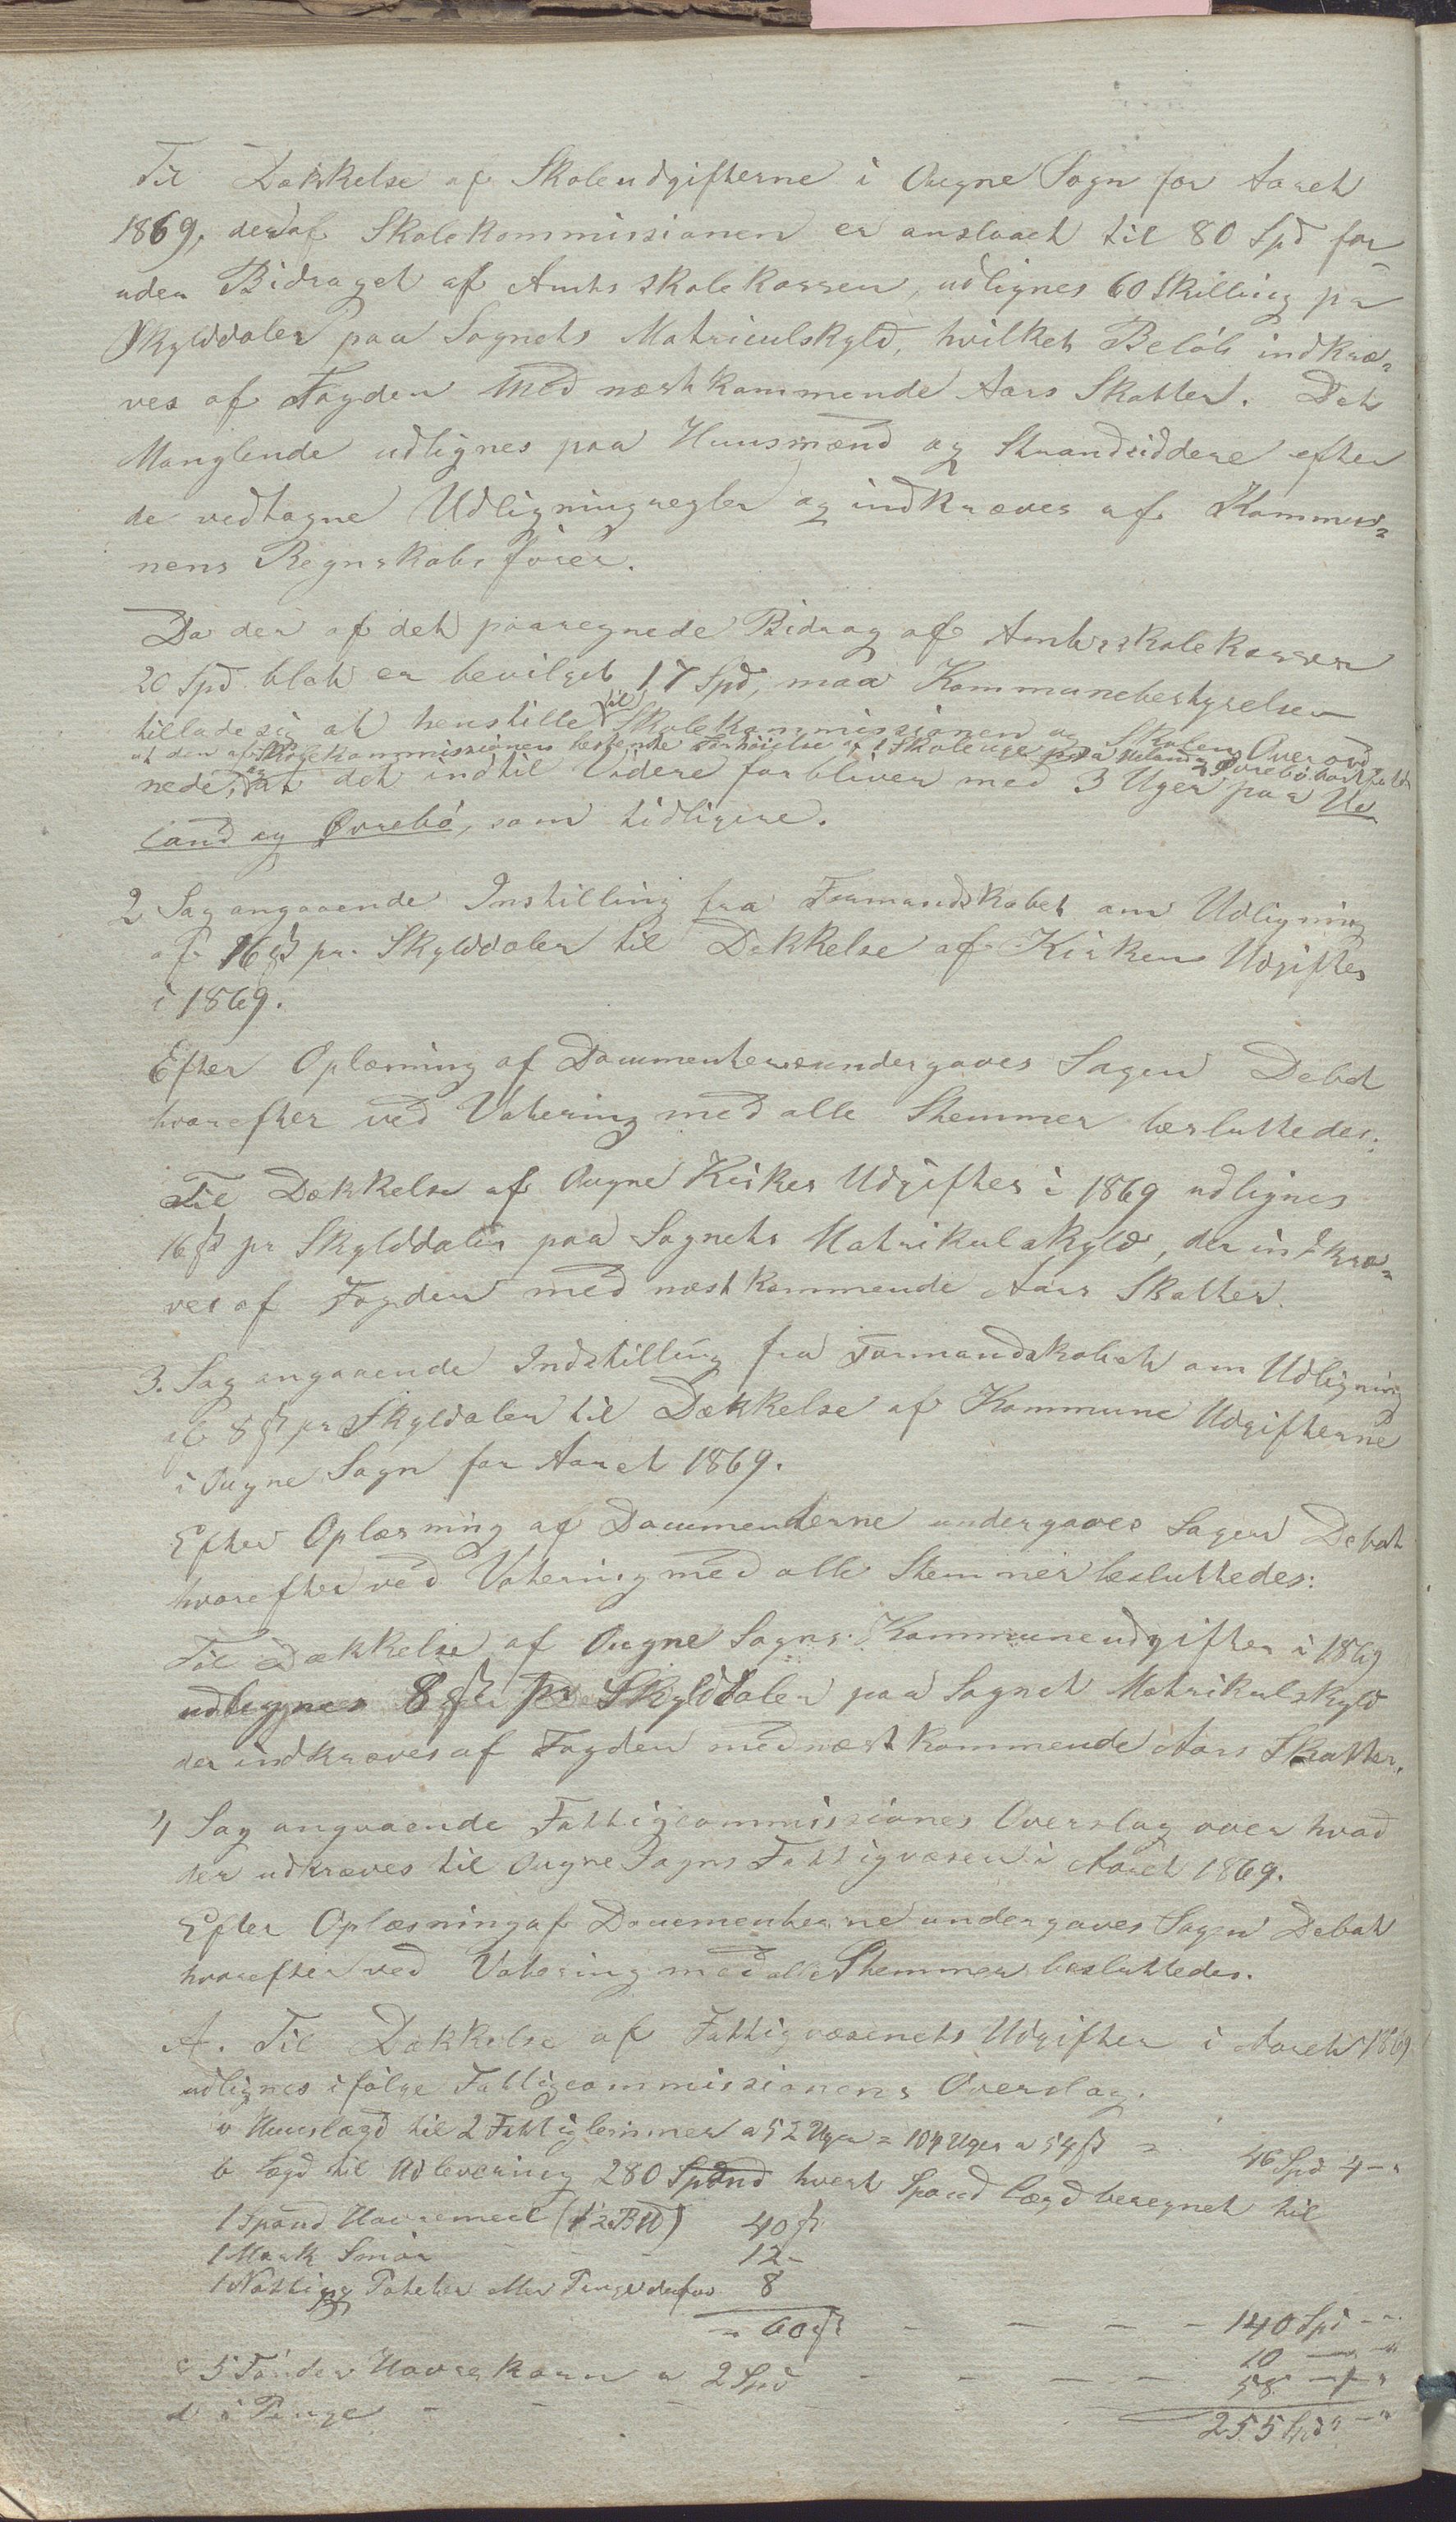 Til Dækkelse af Skoleudgifterne i Ougne Sogn for Aaret
1869, der af Skolekommissionen er anslaaet til 80 Spd for-
uden Bidraget af Amtsskolekassen, udlignes 60 Skilling pr
Skylddaler paa Sognets Matriculskyld, hvilket Beløb indkræ-
ves af Fogden med næstkommende Aars Skatter. Det
Manglende udlignes paa Huusmænd og Strandsiddere efter
de vedtagne Udligningregler og indkræves af Kommu-
nens Regnskabsfører.
Da der af det paaregnede Bidrag af Amtsskolekassen
20 Spd blot er bevilget 17 Spd, maa Kommunebestyrelsen
tillade sig at henstille til Skolekommissionen og Skolens Overord
at den af Skolekommissionen bestemte Forhøielse af 1 Skoleuge paa Ueland og Øvrebø bortfalder
nede, og at det indtil Videre forbliver med 3 Uger paa Ue
land og Øvrebø, som tidligere.
2 Sag angaaende Instilling fra Formandskabet om Udligning
af 16 ß pr. Skylddaler til Dækkelse af Kirkens Udgifter
i 1869.
Efter Oplæsning af Documenterne undergaves Sagen Debat
hvorefter ved Votering med alle Stemmer besluttedes:
Til Dækkelse af Ougne Kirkes Udgifter i 1869 udlignes
16 ß pr Skylddaler paa Sognets Matrikulskyld, der indkræ-
ves af Fogden med næstkommende Aars Skatter.
3. Sag angaaende Indstilling fra Formandskabet om Udligning
af 8 ß pr Skyldaler til Dækkelse af Kommune Udgifterne
i Ougne Sogn for Aaret 1869.
Efter Oplæsning af Documenterne undergaves Sagen Debat
hvorefter ved Votering med alle Stemmer besluttedes:
Til Dækkelse af Ougne Sogns Kommuneudgifter i 1869
udlignes 8 ß pr Skyldaler paa Sognet Matrikulskyld
der indkræves af Fogden med næstkommende Aars Skatter.
4 Sag angaaende Fattigcommissiones Overslag over hvad
der udkræves til Ougne Sogns Fattigvæsen i Aaret 1869.
Efter Oplæsning af Documenterne undergaves Sagen Debat
hvorefter ved Votering med alle Stemmer besluttedes.
A. Til Dækkelse af Fattigvæsenets Udgifter i Aaret 1869
udlignes ifølge Fattigcommissionens Overslag.
a Huuslægd til 2 Fattiglemmer a 52 Uger = 104 Uger a 54 ß = 46 Spd 4 — "
b Lægd til Udlevering 280 Spand hvert Spand Lægd beregnet til
1 Spand Havremeel (12 B℔) 40 ß
1 Mark Smør 12 –
1 Poteter eller Penge derfor 8
= 60 ß — — — — 140 Spd - "
c 5 Tønder Havrekorn a 2 Spd — — — 10 — "
d i Penge — — — 58 — 1 — "
255 Spd " — "